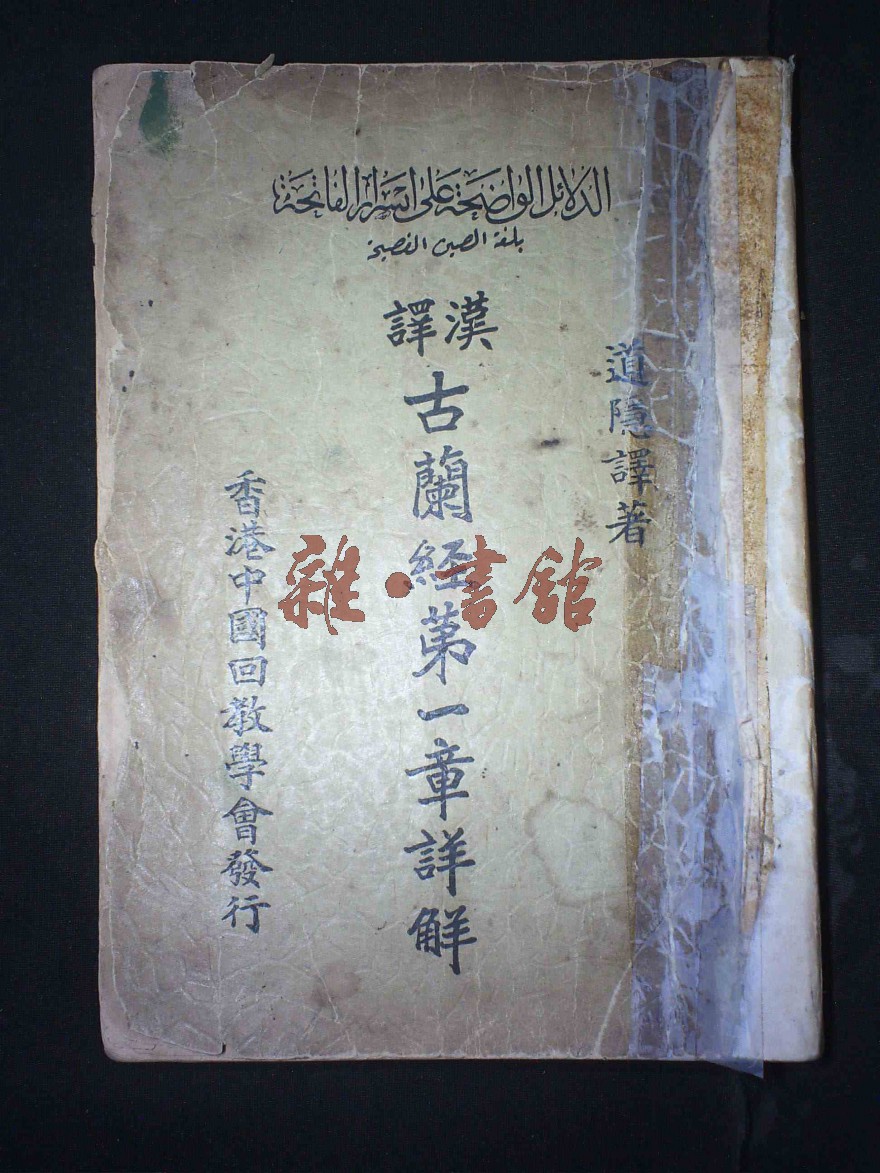 الدلائل الواضحة على أسرار الفاتحة
بلغة الصين الفصيحة
漢譯
古蘭經第一章詳解
道隱譯著
香港中國回教學會發行
雜·書館